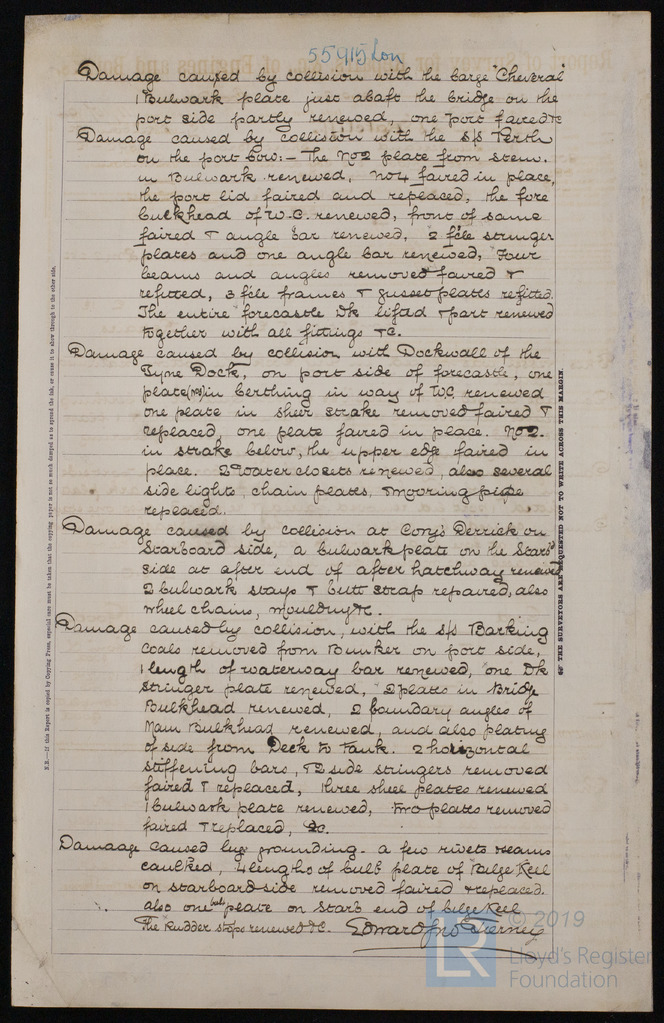 55915 Lon
Damage caused by collision with the barge "Cheveral"
1 Bulwark plate just abaft the bridge on the
port side partly renewed, one port faired &c
Damage caused by collision with the S/S Perth
on the port bow:- The No 2 plate from stem.
in Bulwark renewed, No 4 faired in place,
the port lid faired and replaced, the fore
bulkhead of W.C. renewed, front of same
faired & angle bar renewed, 2 fcle stringer
plates and one angle bar renewed, Four
beams and angles removed faired &
refitted, 3 fcle frames & gusset plates refitted.
The entire forecastle Dk lifted & part renewed
together with all fittings &c.
Damage caused by collision with Dockwall of the
Tyne Dock, on port side of forecastle, one
plate (No 3) in berthing in way of W.C. renewed
one plate in sheer strake removed faired &
replaced, one plate faired in place. No 2.
in strake below, the upper edge faired in
place. 2 Water closets renewed, also several
side lights, chain plates, & mooring pipe
replaced.
Damage caused by collision at Cory's Derrick on
Starboard side, a bulwark plate on the Starbd
side at after end of after hatchway renewed
2 bulwark stays & butt strap repaired, also
wheel chains, moulding &c.
Damage caused by collision, with the S/S Barking
Coals removed from Bunker on port side,
1 length of waterway bar renewed, one Dk
Stringer plate renewed, 2 plates in Bridge
Bulkhead renewed, 2 boundary angles of
Main Bulkhead renewed, and also plating
of side from Deck to Tank. 2 horizontal
stiffening bars, & 2 side stringers removed
faired & replaced, three sheer plates renewed
1 bulwark plate renewed, two plates removed
faired & replaced, &c.
Damaage caused by grounding. a few rivets & seams
caulked, 4 lengths of bulb plate of Bilge Keel
on starboard side removed faired & replaced.
also one plate on Starb end of bilge Keel
The rudder stops renewed &c. Edward Jno Tierney
N.B.—If this Report is copied by Copying Press, especial care must be taken that the copying paper is not so much damped as to spread the ink, or cause it to show through to the other side.
OF THE SURVEYORS ARE REQUESTED NOT TO WRITE ACROSS THIS MARGIN.
© 2019
LR
Lloyd's Register
Foundation